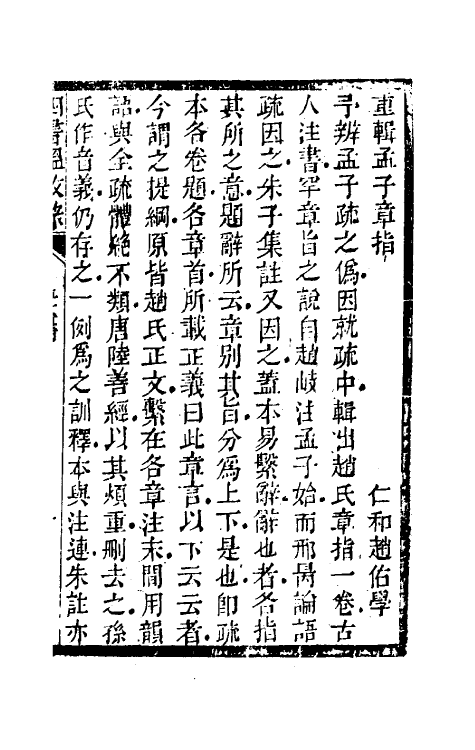 重輯孟子章指
仁和趙佑學
予辨孟子疏之僞因就疏中輯出趙氏章指一卷古
人注書罕章旨之說自趙岐注孟子始而邢昺論語
疏因之朱子集註又因之蓋本易繫辭辭也者各指
其所之意題辭所云章別其旨分爲上下是也卽疏
本各卷題各章首所載正義曰此章言以下云云者
今謂之提綱原皆趙氏正文繫在各章注末間用韻
語與全疏體絕不類唐陸善經以其煩重刪去之孫
氏作音義仍存之一例爲之訓釋本與注連朱註亦
四書溫故錄